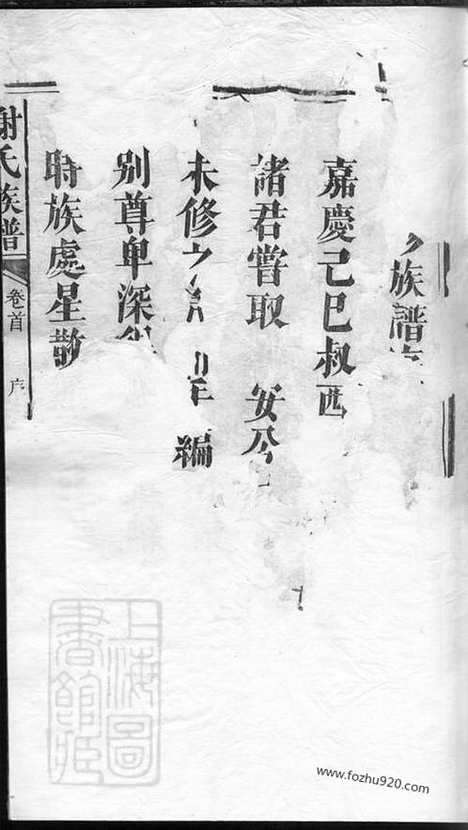 族譜
嘉慶己巳叔西
諸君嘗取
安公
未修
編
别尊卑深
時族處星散
謝氏族譜
卷首
序
上海圖書館藏
www.fozhu920.com